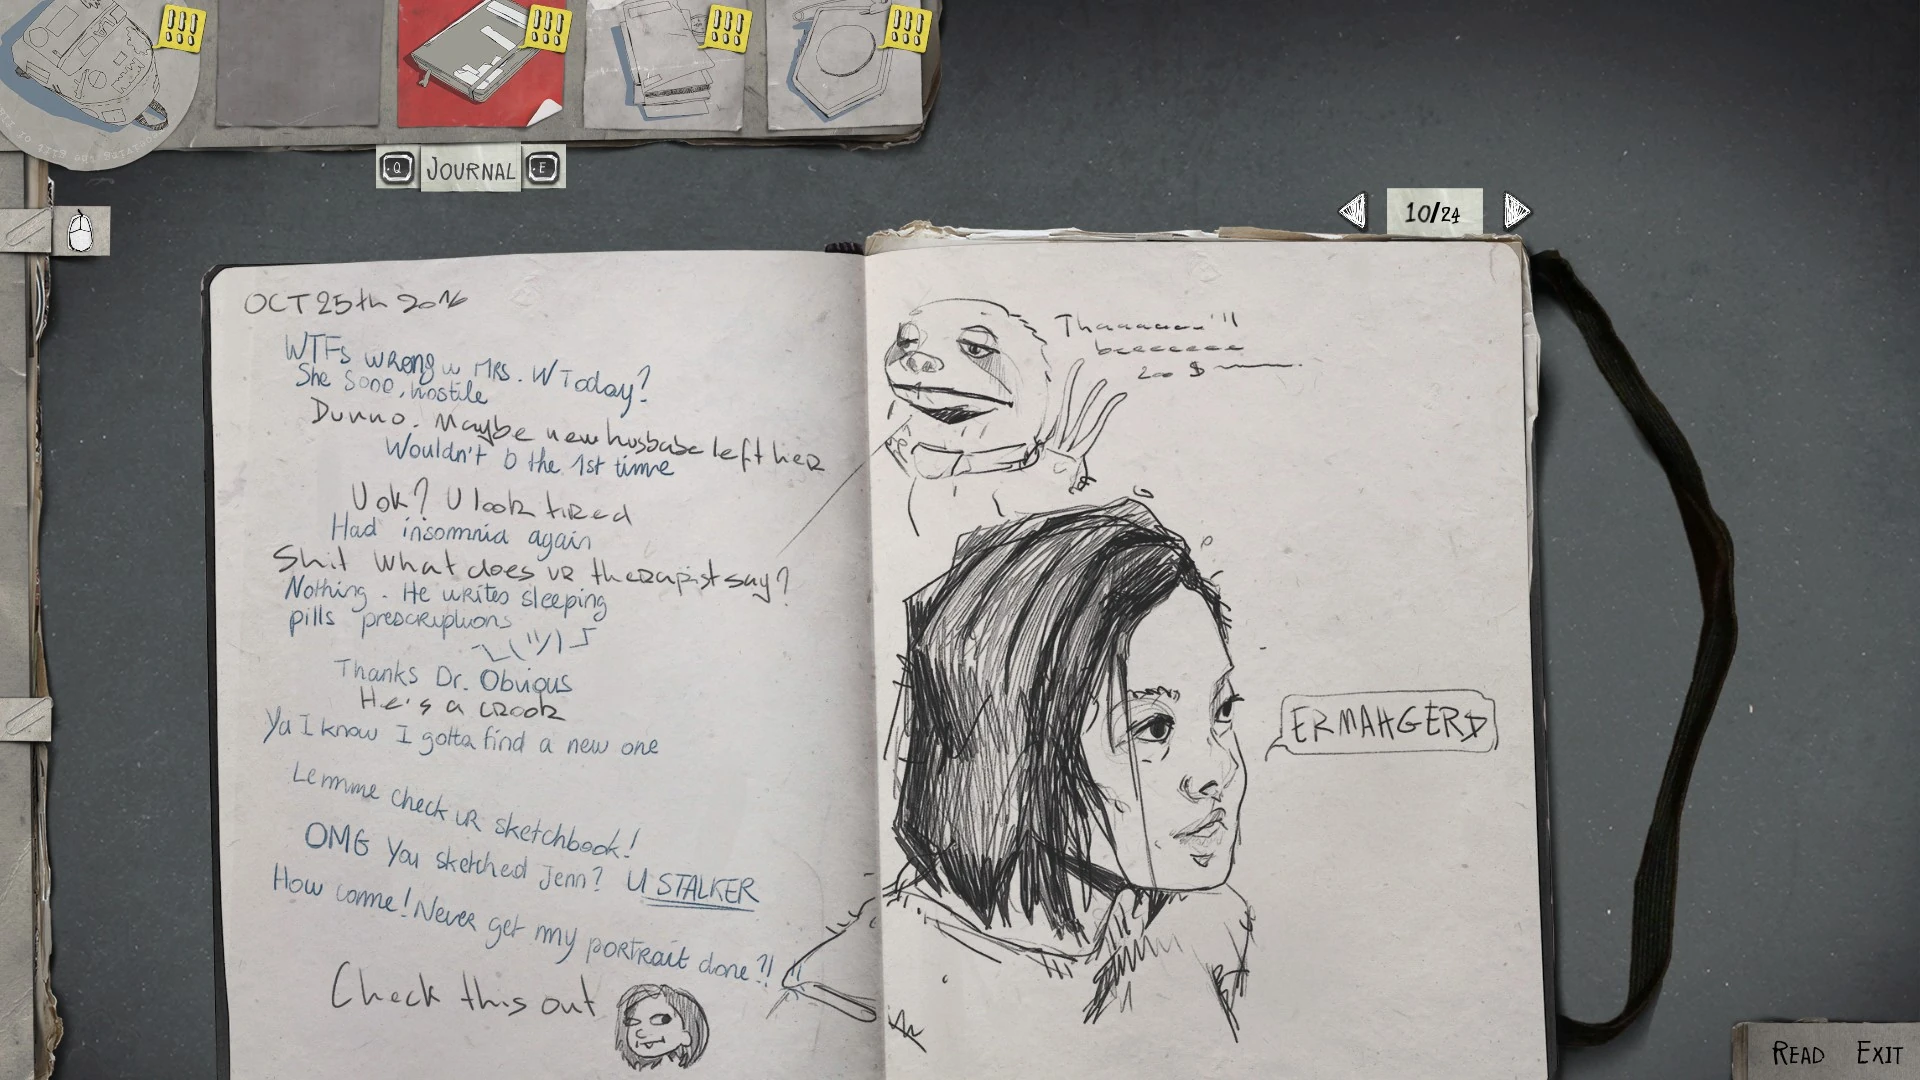 JOURNAL
Q
E
10/24
OCT 25th 2016
WTFs wrong w MRS. W Today?
She sooo, hostile
Dunno. Maybe new husbabe left her
Wouldn't b the 1st time
U ok? U look tired
Had insomnia again
Shit What does ur therapist say?
Nothing. He writes sleeping
pills prescriptions
¯\_(ツ)_/¯
Thanks Dr. Obvious
He's a crook
Ya I know I gotta find a new one
Lemme check ur sketchbook!
OMG You sketched Jenn? U STALKER
How come! Never get my portrait done?!
Check this out
Thaaaaaa'll
beeeeeee
20 $
ERMAHGERD
READ EXIT